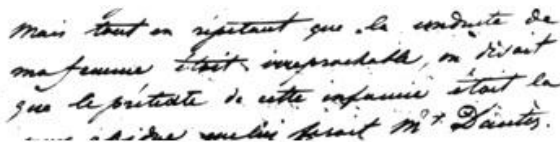 mais tout en répétant que la conduite de
ma femme était irréprochable, on disait
que le prétexte de cette infamie était la
que lui ferait Mr. Dantès.